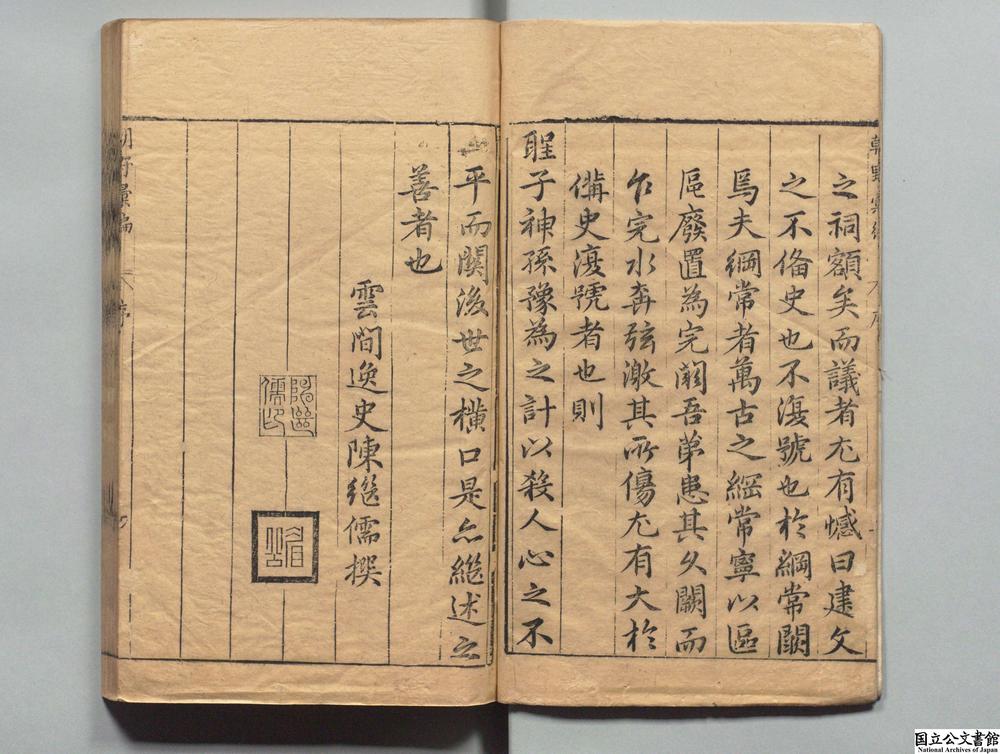 之祠額矣而議者尤有憾曰建文
之不俻史也不復號也於綱常關
焉夫綱常者萬古之綱常寧以區
區廢置為完闕吾弟患其久闕而
乍完水奔弦激其所傷尤有大於
備史復號者也則
聖子神孫豫為之計以殺人心之不
平而關後世之橫口是亦繼述之
善者也
雲間逸史陳繼儒撰
陳繼
儒印
眉公
序
国立公文書館
National Archives of Japan